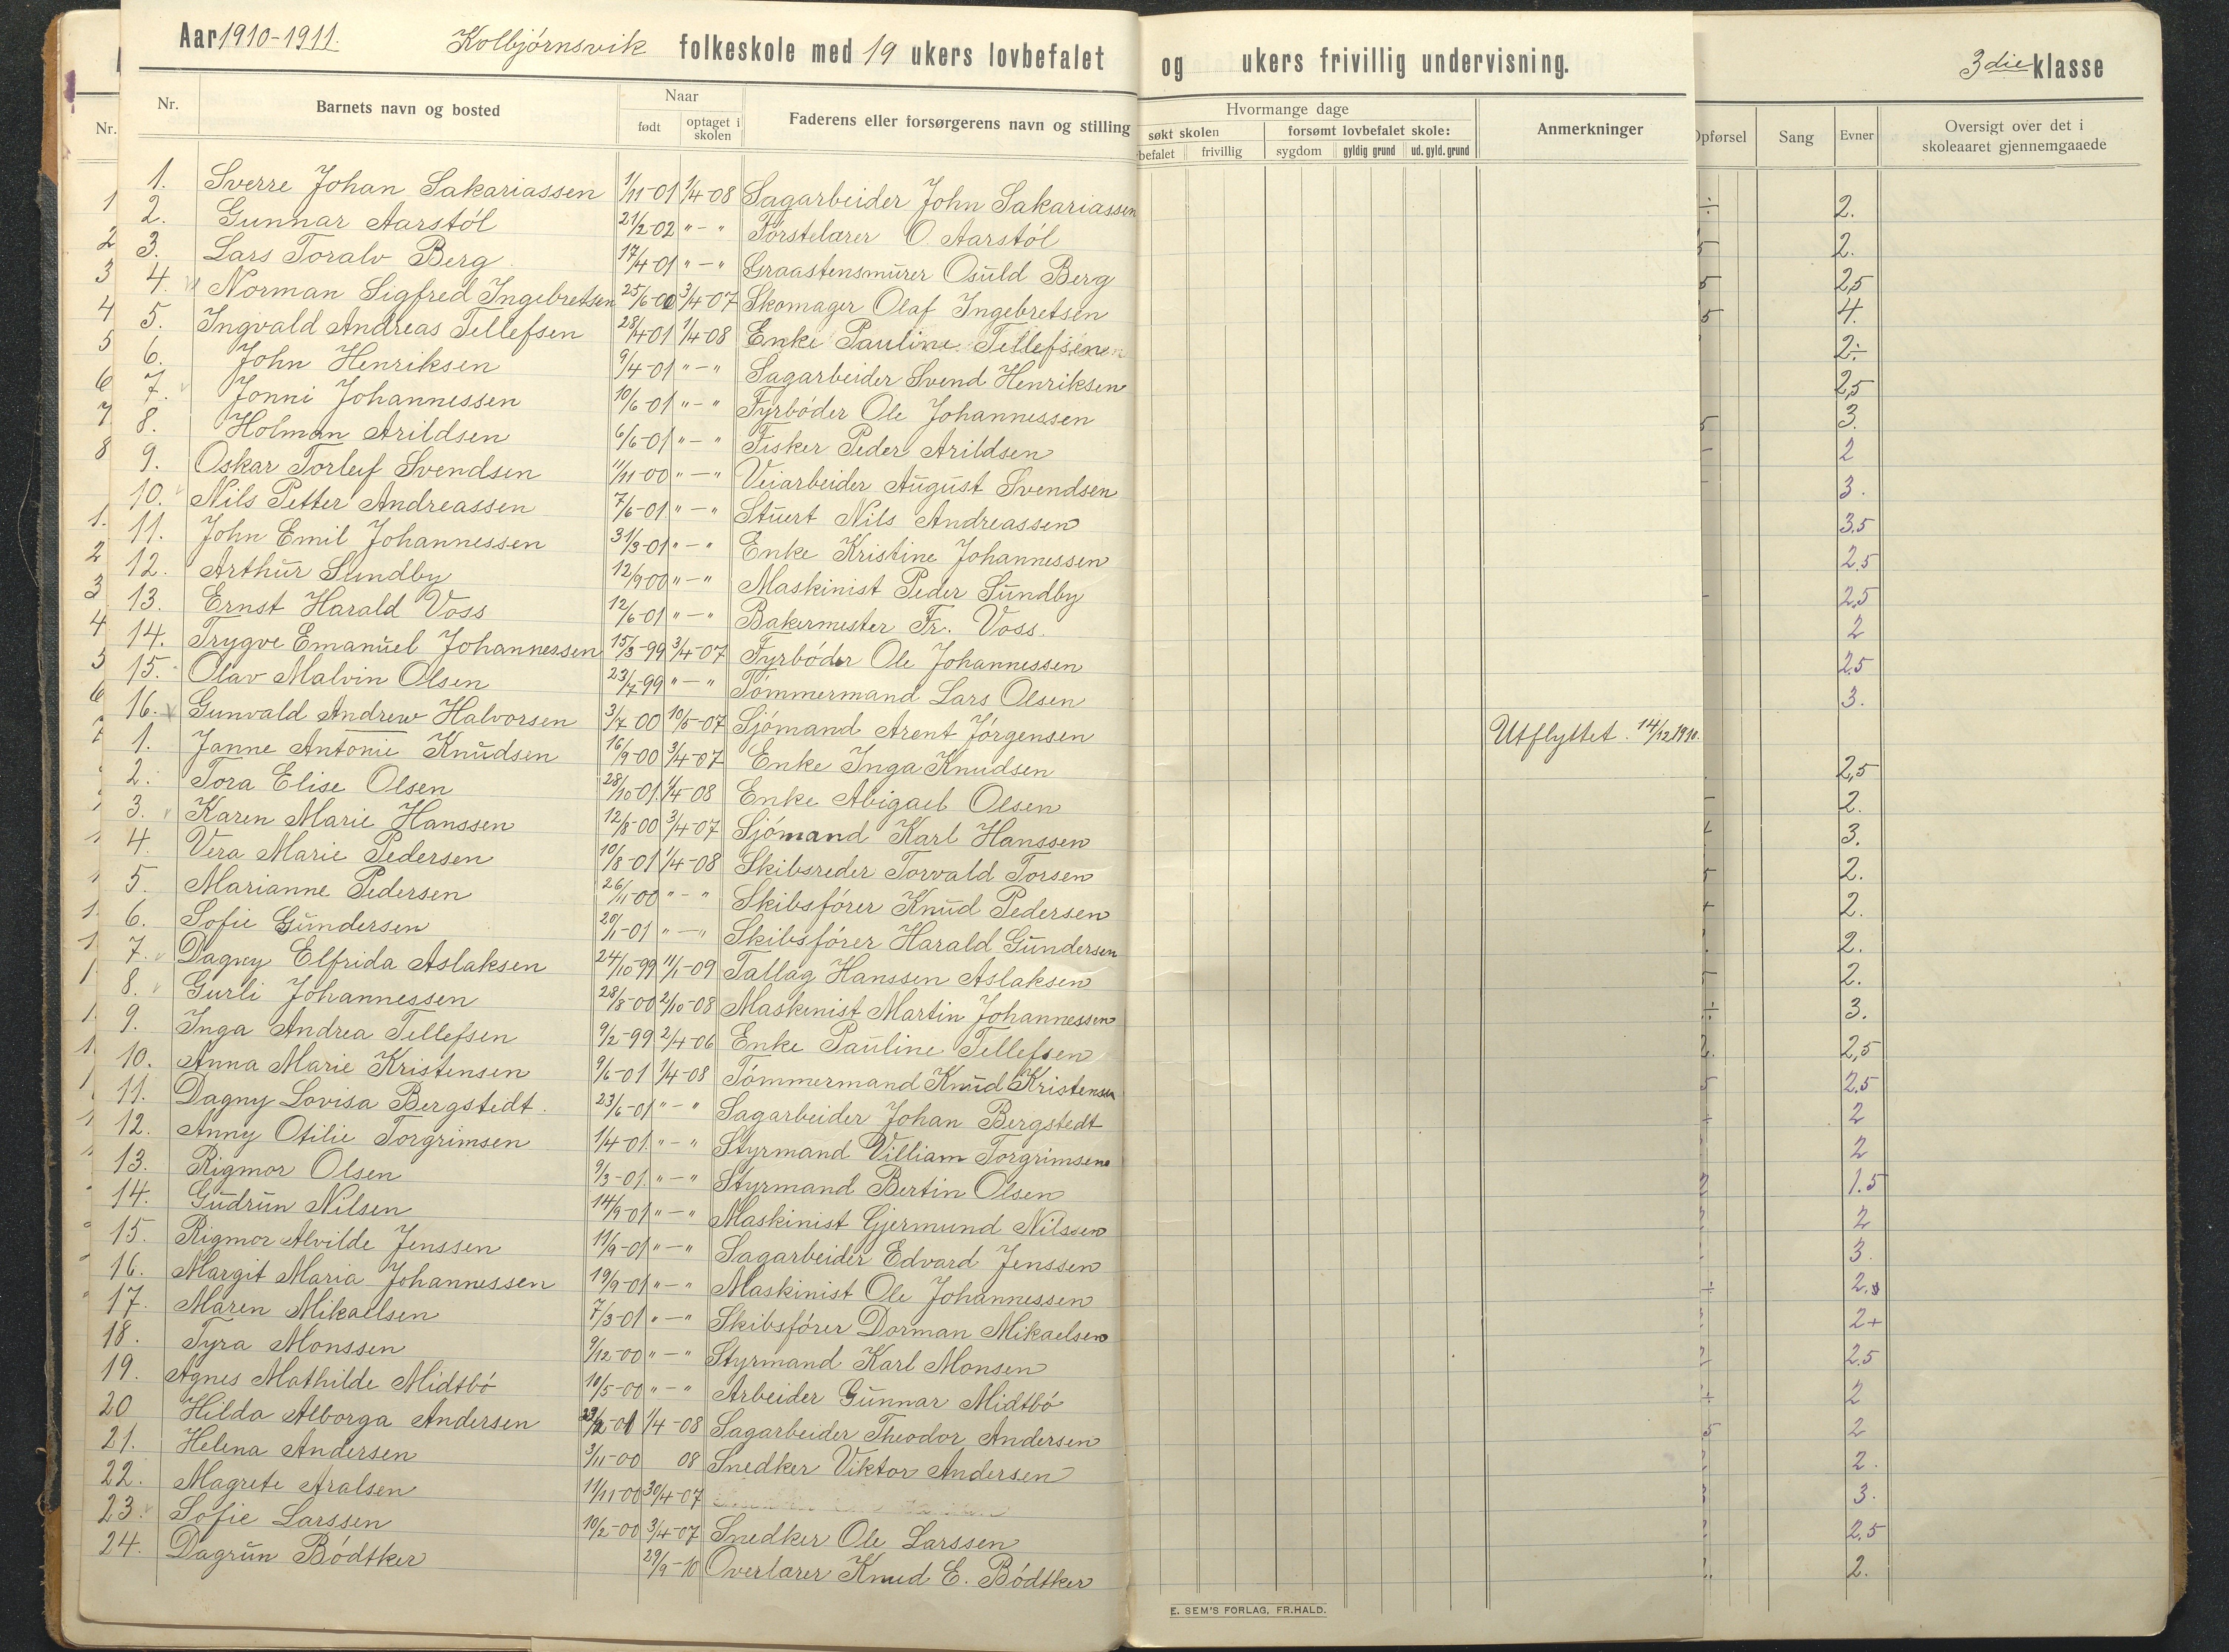 Aar 1910-1911. Kolbjørnsvik folkeskole med 19 ukers lovbefalet og ukers frivillig undervisning. 3die klasse
Nr. Barnets navn og bosted Naar født optaget i skolen Faderens eller forsørgerens navn og stilling
Hvormange dage søkt skolen befalet frivillig forsømt lovbefalet skole: sygdom gyldig grund ud. gyld. grund Anmerkninger
Opførsel Sang Evner Oversigt over det i skoleaaret gjennemgaaede
1. Sverre Johan Sakariassen 1/11-01 1/4-08 Sagarbeider John Sakariassen 2.
2. Gunnar Aarstøl 21/2-02 "-" Førstelærer O. Aarstøl 2.
3. Lars Toralv Berg 17/4-01 "-" Graastensmurer Osuld Berg 2,5
4. Norman Sigfred Ingebretsen 25/6-00 3/4-07 Skomager Olaf Ingebretsen 4.
5. Ingvald Andreas Tellefsen 28/4-01 1/4-08 Enke Pauline Tellefsen 2÷
6. John Henriksen 9/4-01 "-" Sagarbeider Svend Henriksen 2,5
7. Jonni Johannessen 10/6-01 "-" Fyrbøder Ole Johannessen 3.
8. Holman Arildsen 6/6-01 "-" Fisker Peder Arildsen 2
9. Oskar Torleif Svendsen 11/11-00 "-" Veiarbeider August Svendsen 3.
10. Nils Petter Andreassen 7/6-01 "-" Stuert Nils Andreassen 3.5
11. John Emil Johannessen 31/3-01 "-" Enke Kristine Johannessen 2.5
12. Arthur Sundby 12/9-00 "-" Maskinist Peder Sundby 2,5
13. Ernst Harald Voss 12/6-01 "-" Bakermester Fr. Voss. 2
14. Trygve Emanuel Johannessen 15/3-99 3/4-07 Fyrbøder Ole Johannessen 2.5
15. Olav Malvin Olsen 23/7-99 "-" Tømmermand Lars Olsen 3.
16. Gunvald Andrew Halvorsen 3/7 00 10/5-07 Sjømand Arent Jørgensen Utflyttet. 14/12 1910.
1. Janne Antonie Knudsen 16/9-00 3/4-07 Enke Inga Knudsen 2,5
2. Tora Elise Olsen 28/10-01. 1/4-08 Enke Abigael Olsen 2.
3. Karen Marie Hanssen 12/8-00 3/4-07 Sjømand Karl Hanssen 3.
4. Vera Marie Pedersen 10/8-01 1/4-08 Skibsreder Torvald Torsen 2.
5. Marianne Pedersen 26/11-00 "-" Skibsfører Knud Pedersen 2.
6. Sofie Gundersen 20/1-01 "-" Skibsfører Harald Gundersen 2.
7. Dagny Elfrida Aslaksen 24/10-99 11/1-09 Tallag Hanssen Aslaksen 2.
8. Gurli Johannessen 28/8-00 2/10-08 Maskinist Martin Johannessen 3.
9. Inga Andrea Tellefsen 9/2-99 2/4-06 Enke Pauline Tellefsen 2,5
10. Anna Marie Kristensen 9/6-01 1/4-08 Tømmermand Knud Kristensen 2.5
11. Dagny Lovisa Bergstedt. 23/6-01 "-" Sagarbeider Johan Bergstedt 2
12. Anny Otilie Torgrimsen 1/4-01. "-" Styrmand Villiam Torgrimsen 2
13. Rigmor Olsen 9/3-01. "-" Styrmand Bertin Olsen 1.5
14. Gudrun Nilsen 14/9-01 "-" Maskinist Gjermund Nilssen 2
15. Rigmor Alvilde Jenssen 11/9-01 "-" Sagarbeider Edvard Jenssen 3.
16. Margit Maria Johannessen 19/9-01 "-" Maskinist Ole Johannessen 2.
17. Maren Mikaelsen 7/3-01 "-" Skibsfører Dorman Mikaelsen 2+
18. Tyra Monssen 9/12-00 "-" Styrmand Karl Monsen 2.5
19. Agnes Mathilde Midtbø 10/5-00 "-" Arbeider Gunnar Midtbø 2
20 Hilda Alborga Andersen 1/4-08 Sagarbeider Theodor Andersen 2
21. Helena Andersen 3/11-00 08 Snedker Viktor Andersen 2.
22. Magrete Aralsen 11/11-00 30/4-07 3.
23. Sofie Larssen 10/2-00 3/4-07 Snedker Ole Larssen 2.5
24. Dagrun Bødtker 29/9-10 Overlærer Knud E. Bødtker 2.
E. SEM'S FORLAG, FR.HALD.